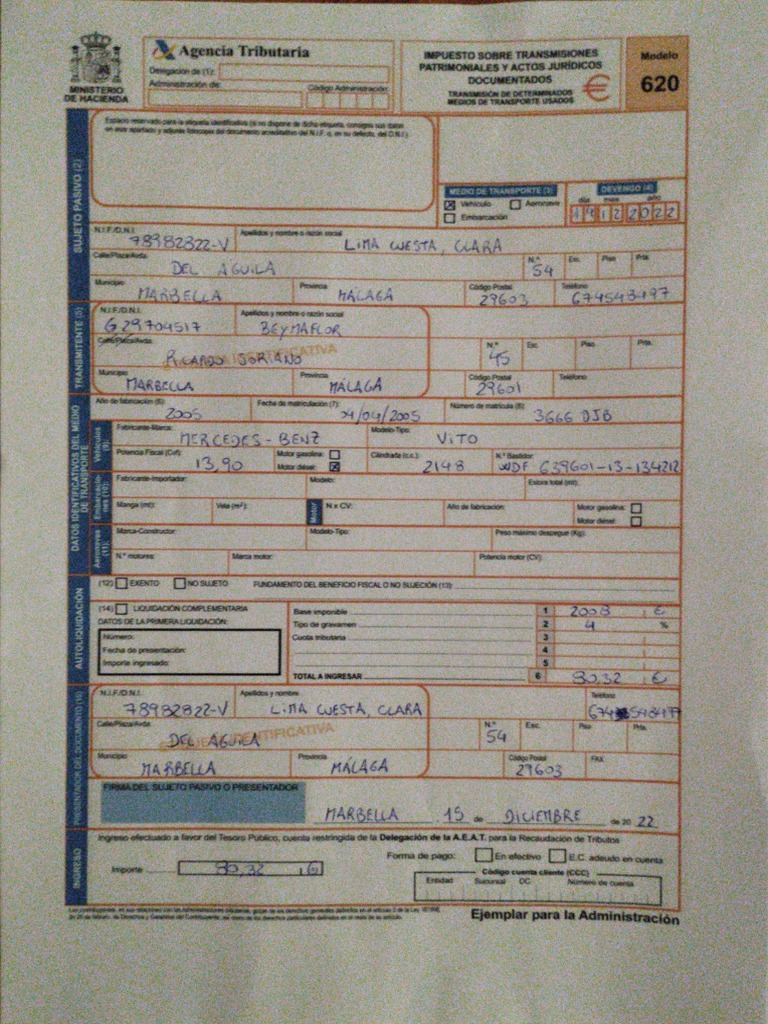 MINISTERIO
DE HACIENDA
Agencia Tributaria
Delegación de (1):
Administración de:
Código Administración:
IMPUESTO SOBRE TRANSMISIONES
PATRIMONIALES Y ACTOS JURÍDICOS
DOCUMENTADOS
TRANSMISIÓN DE DETERMINADOS
MEDIOS DE TRANSPORTE USADOS
€
Modelo
620
SUJETO PASIVO (2)
Espacio reservado para la etiqueta identificativa (si no dispone de dicha etiqueta, consigne sus datos
en este apartado y adjunte fotocopia del documento acreditativo del N.I.F. o, en su defecto, del D.N.I.)
MEDIO DE TRANSPORTE (3)
Vehículo Aeronave
Embarcación
DEVENGO (4)
día mes año
12 2022
N.I.F./D.N.I. Apellidos y nombre o razón social
78982822-V LIMA CUESTA, CLARA
Calle/Plaza/Avda. N.º Esc. Piso Prta.
DEL AGUILA 54
Municipio Provincia Código Postal Teléfono
MARBELLA MÁLAGA 29603 674548497
TRANSMITENTE (5)
N.I.F./D.N.I. Apellidos y nombre o razón social
G29704517 BEYMAFLOR
Calle/Plaza/Avda. N.º Esc. Piso Prta.
RICARDO SORIANO 45
Municipio Provincia Código Postal Teléfono
MARBELLA MÁLAGA 29601
DATOS IDENTIFICATIVOS DEL MEDIO
DE TRANSPORTE
Año de fabricación (6): Fecha de matriculación (7): Número de matrícula (8):
2005 04/04/2005 3666 DJB
Vehículos (9)
Fabricante-Marca: Modelo-Tipo:
MERCEDES-BENZ VITO
Potencia Fiscal (Cvf): Motor gasolina: Cilindrada (c.c.): N.º Bastidor:
Motor diésel:
13,90 2148 WDF 639601-13-134212
Embarcaciones (10)
Fabricante-Importador: Modelo: Eslora total (mt):
Manga (mt): Vela (m²): Motor N x CV: Año de fabricación: Motor gasolina:
Motor diésel:
Aeronaves (11)
Marca-Constructor: Modelo-Tipo: Peso máximo despegue (Kg):
N.º motores: Marca motor: Potencia motor (CV):
AUTOLIQUIDACIÓN
(12) EXENTO NO SUJETO FUNDAMENTO DEL BENEFICIO FISCAL O NO SUJECIÓN (13):
(14) LIQUIDACIÓN COMPLEMENTARIA
DATOS DE LA PRIMERA LIQUIDACIÓN:
Número:
Fecha de presentación:
Importe ingresado:
Base imponible 1 2008 €
Tipo de gravamen 2 4 %
Cuota tributaria 3
4
5
TOTAL A INGRESAR 6 80,32 €
PRESENTADOR DEL DOCUMENTO
N.I.F./D.N.I. Apellidos y nombre Teléfono
78982822-V LIMA CUESTA, CLARA 674 548497
Calle/Plaza/Avda. N.º Esc. Piso Prta.
DEL AGUILA 54
Municipio Provincia Código Postal FAX
MARBELLA MÁLAGA 29603
FIRMA DEL SUJETO PASIVO O PRESENTADOR
MARBELLA 15 de DICIEMBRE de 20 22
INGRESO
Ingreso efectuado a favor del Tesoro Público, cuenta restringida de la Delegación de la A.E.A.T. para la Recaudación de Tributos
Importe 80,32 €
Forma de pago: En efectivo E.C. adeudo en cuenta
Código cuenta cliente (CCC)
Entidad Sucursal DC Número de cuenta
Ejemplar para la Administración